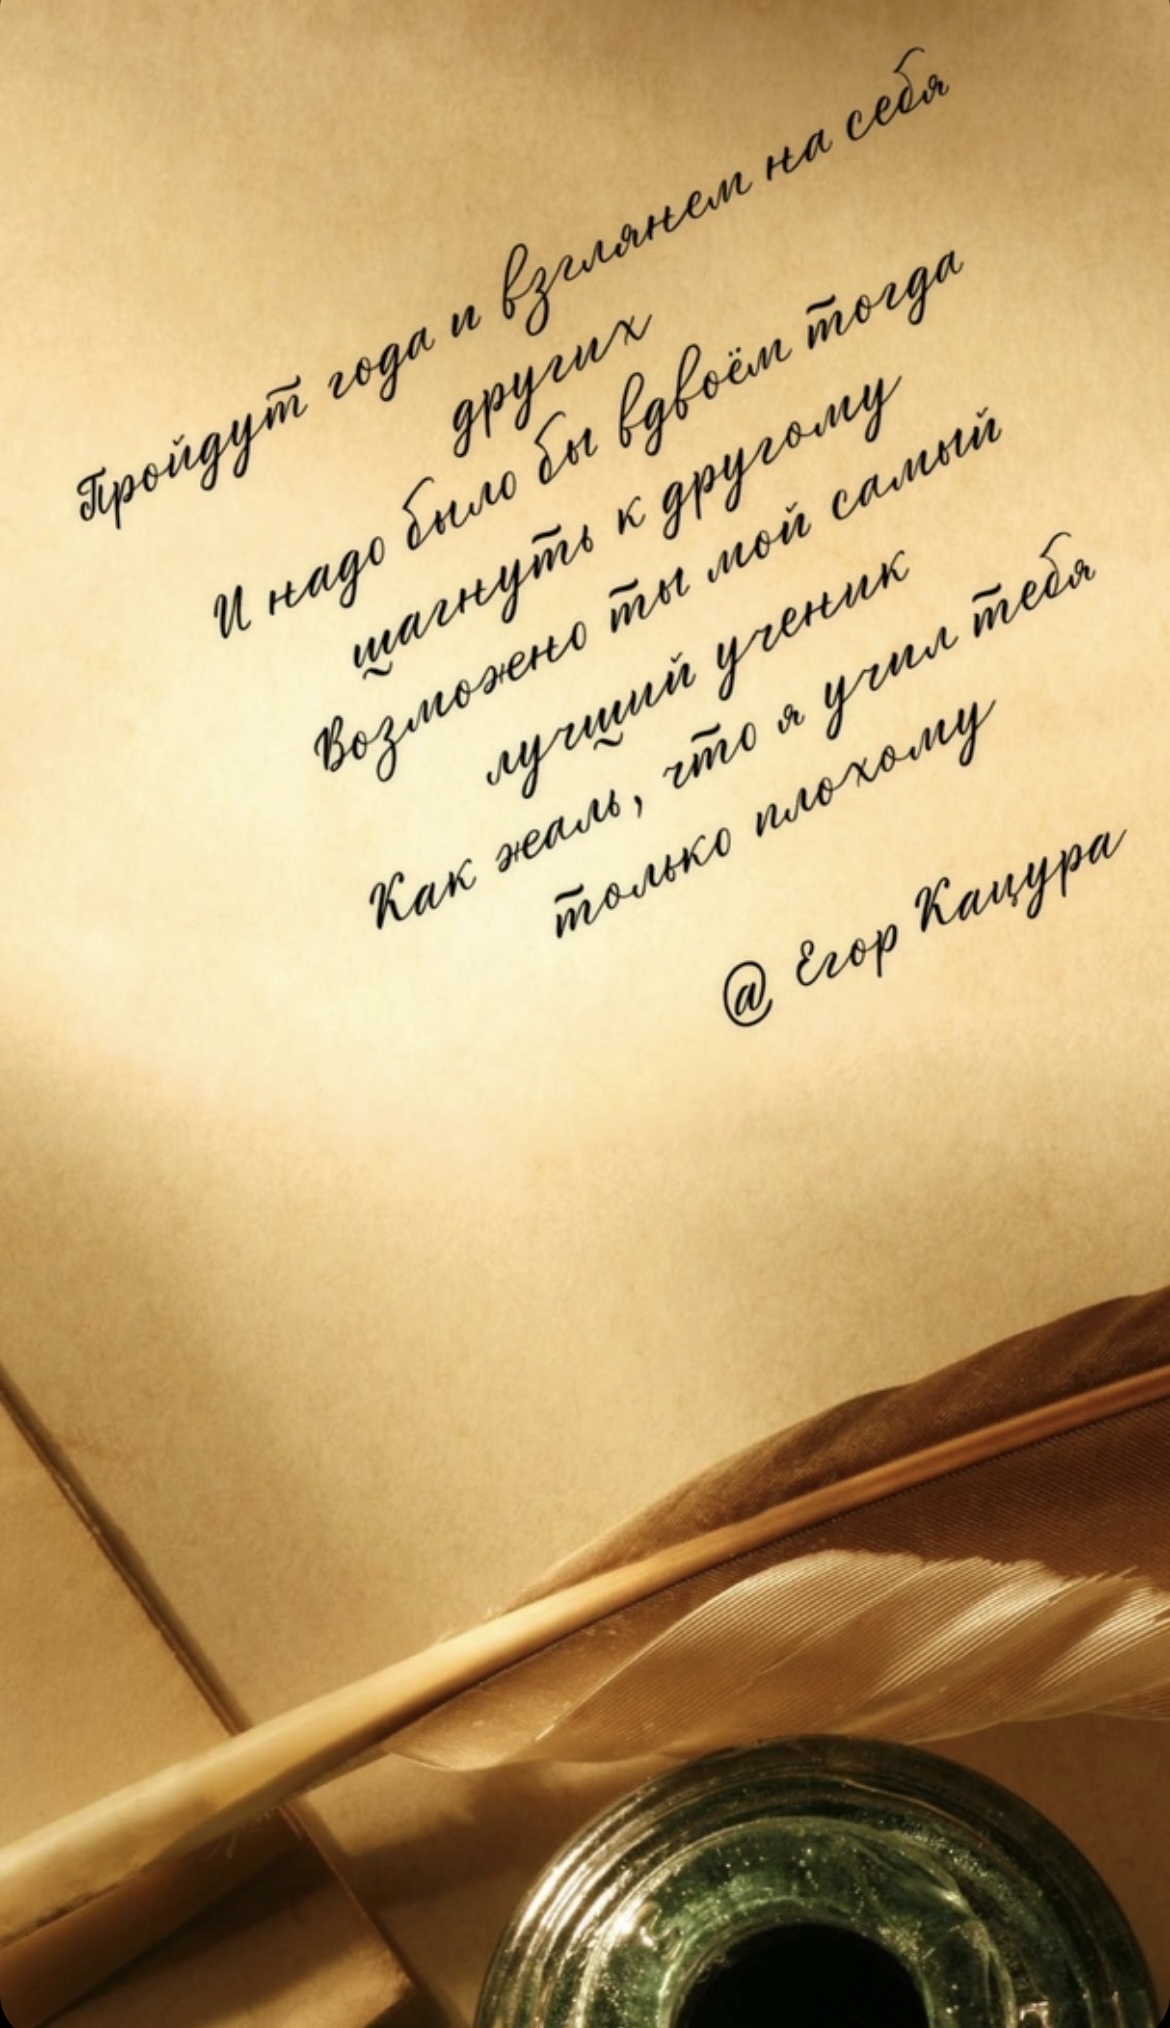 Пройдут года и взглянем на себя
других
И надо было бы вдвоём тогда
шагнуть к другому
Возможно ты мой самый
лучший ученик
Как жаль, что я учил тебя
только плохому
@ Егор Кацура